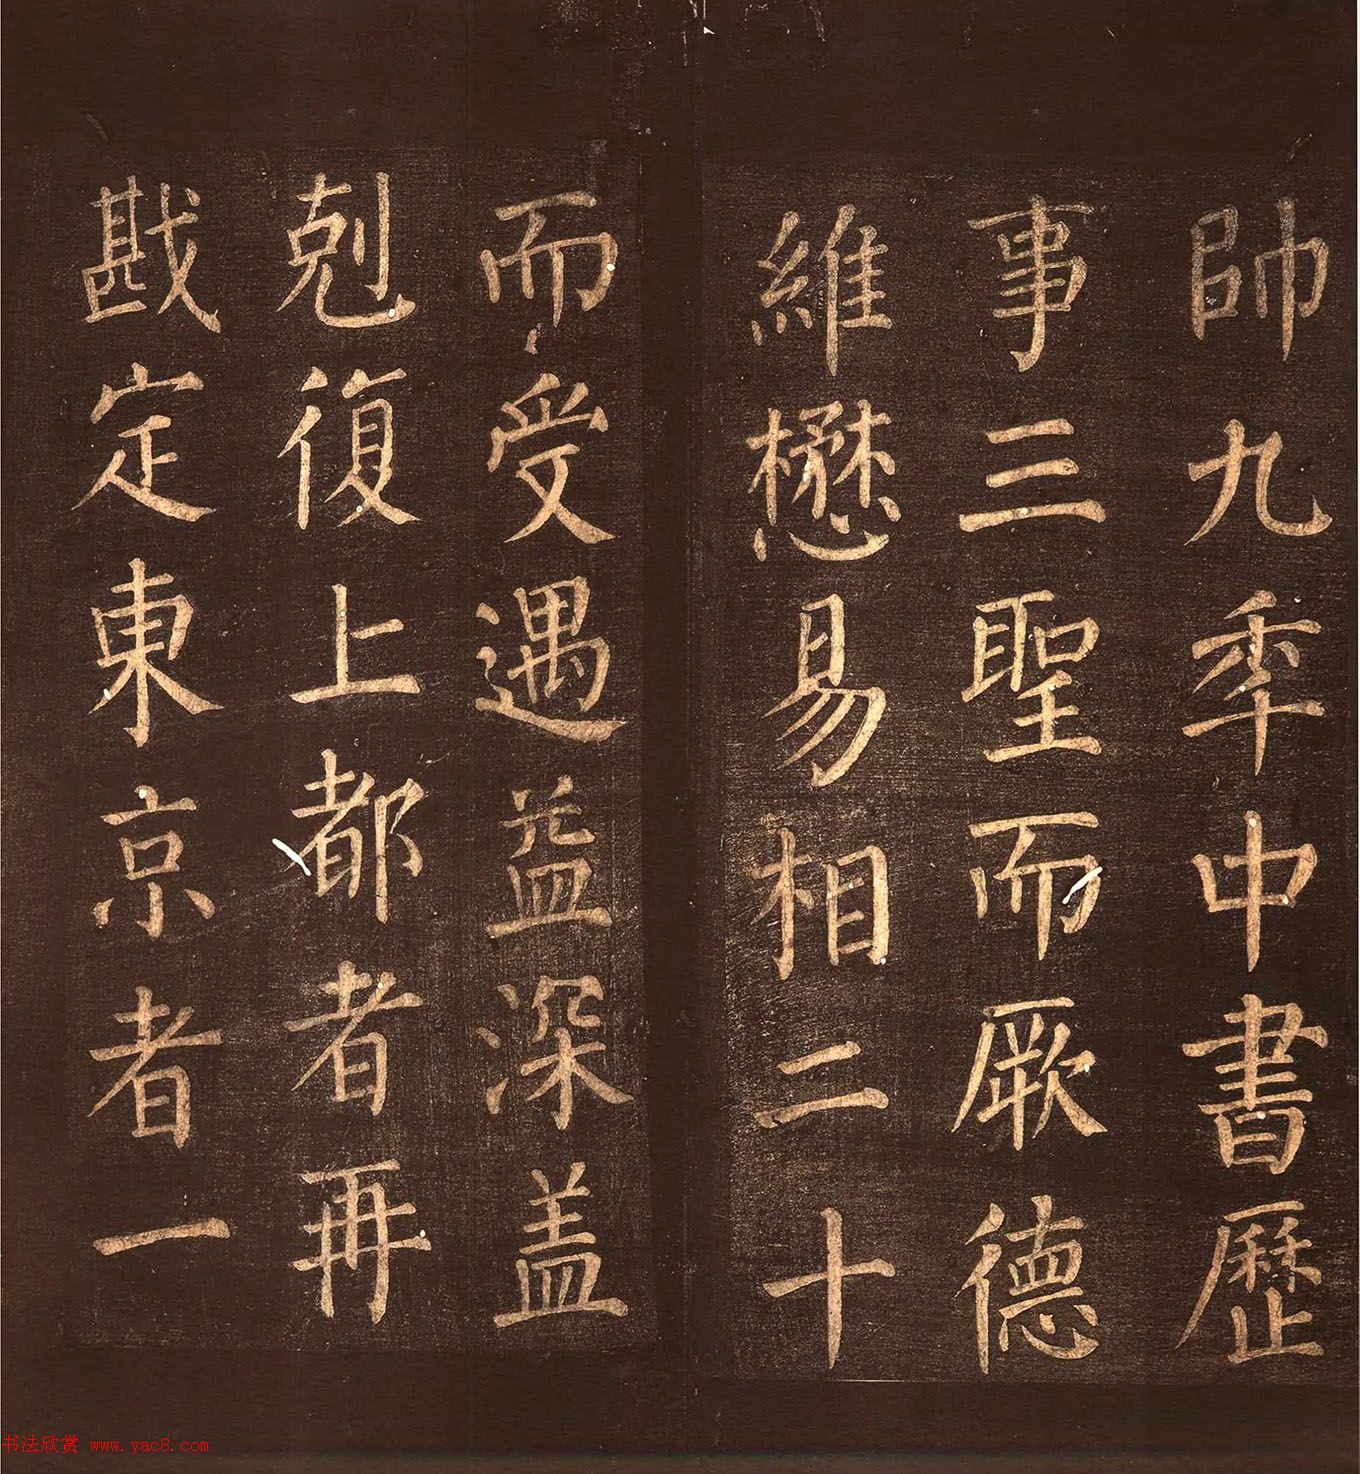 帥九秊中書歷
事三聖而厥德
維懋易相二十
而受遇益深盖
剋復上都者再
戡定東京者一
书法欣赏 www.yac8.com